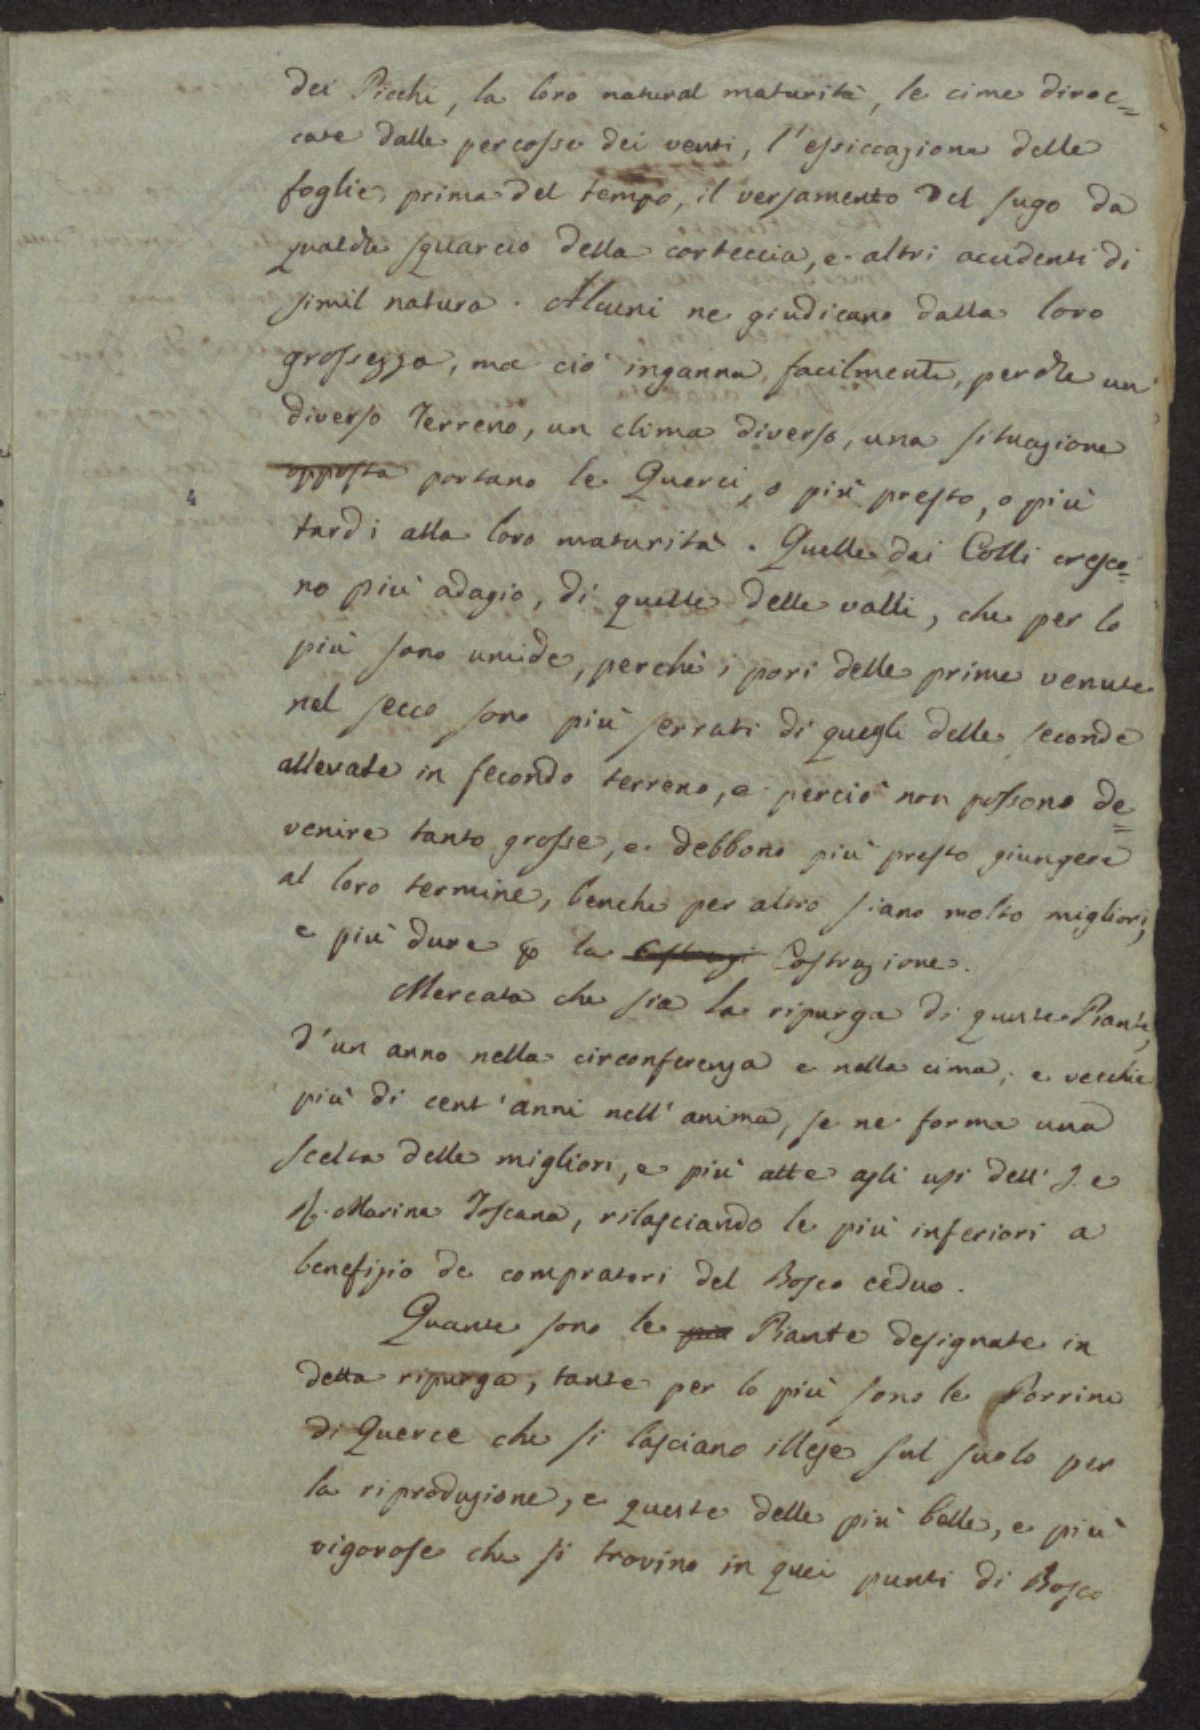 dei Picchi, la loro natural maturità, le cime diroc=
cate dalle percosse dei venti, l'essiccazione delle
foglie prima del tempo, il versamento del sugo da
qualche squarcio della corteccia, e altri accidenti di
simil natura. Alcuni ne giudicano dalla loro
grossezza, ma ciò inganna facilmente, perche un
diverso Terreno, un clima diverso, una situazione
opposta portano le Querci, o più presto, o più
tardi alla loro maturità. Quelle dei Colli cresco=
no più adagio, di quelle delle valli, che per lo
più sono umide, perchè i pori delle prime venute
nel secco sono più serrati di quegli delle seconde
allevate in fecondo terreno, e perciò non possono de=
venire tanto grosse, e debbono più presto giungere
al loro termine, benche per altro siano molto migliori,
e più dure la Costruzi Costruzione.
Mercata che sia la ripurga di queste Piante,
d'un anno nella circonferenza e nella cima, e vecchie
più di cent'anni nell'anima, se ne forma una
scelta delle migliori, e più atte agli usi dell' I. e
R. Marina Toscana, rilasciando le più inferiori a
benefizio de compratori del Bosco ceduo.
Quante sono le più Piante designate in
detta ripurga, tante per lo più sono le Porrine
di Querce che si lasciano illese sul suolo per
la riproduzione, e queste delle più belle, e più
vigorose che si trovino in quei punti di Bosco
4